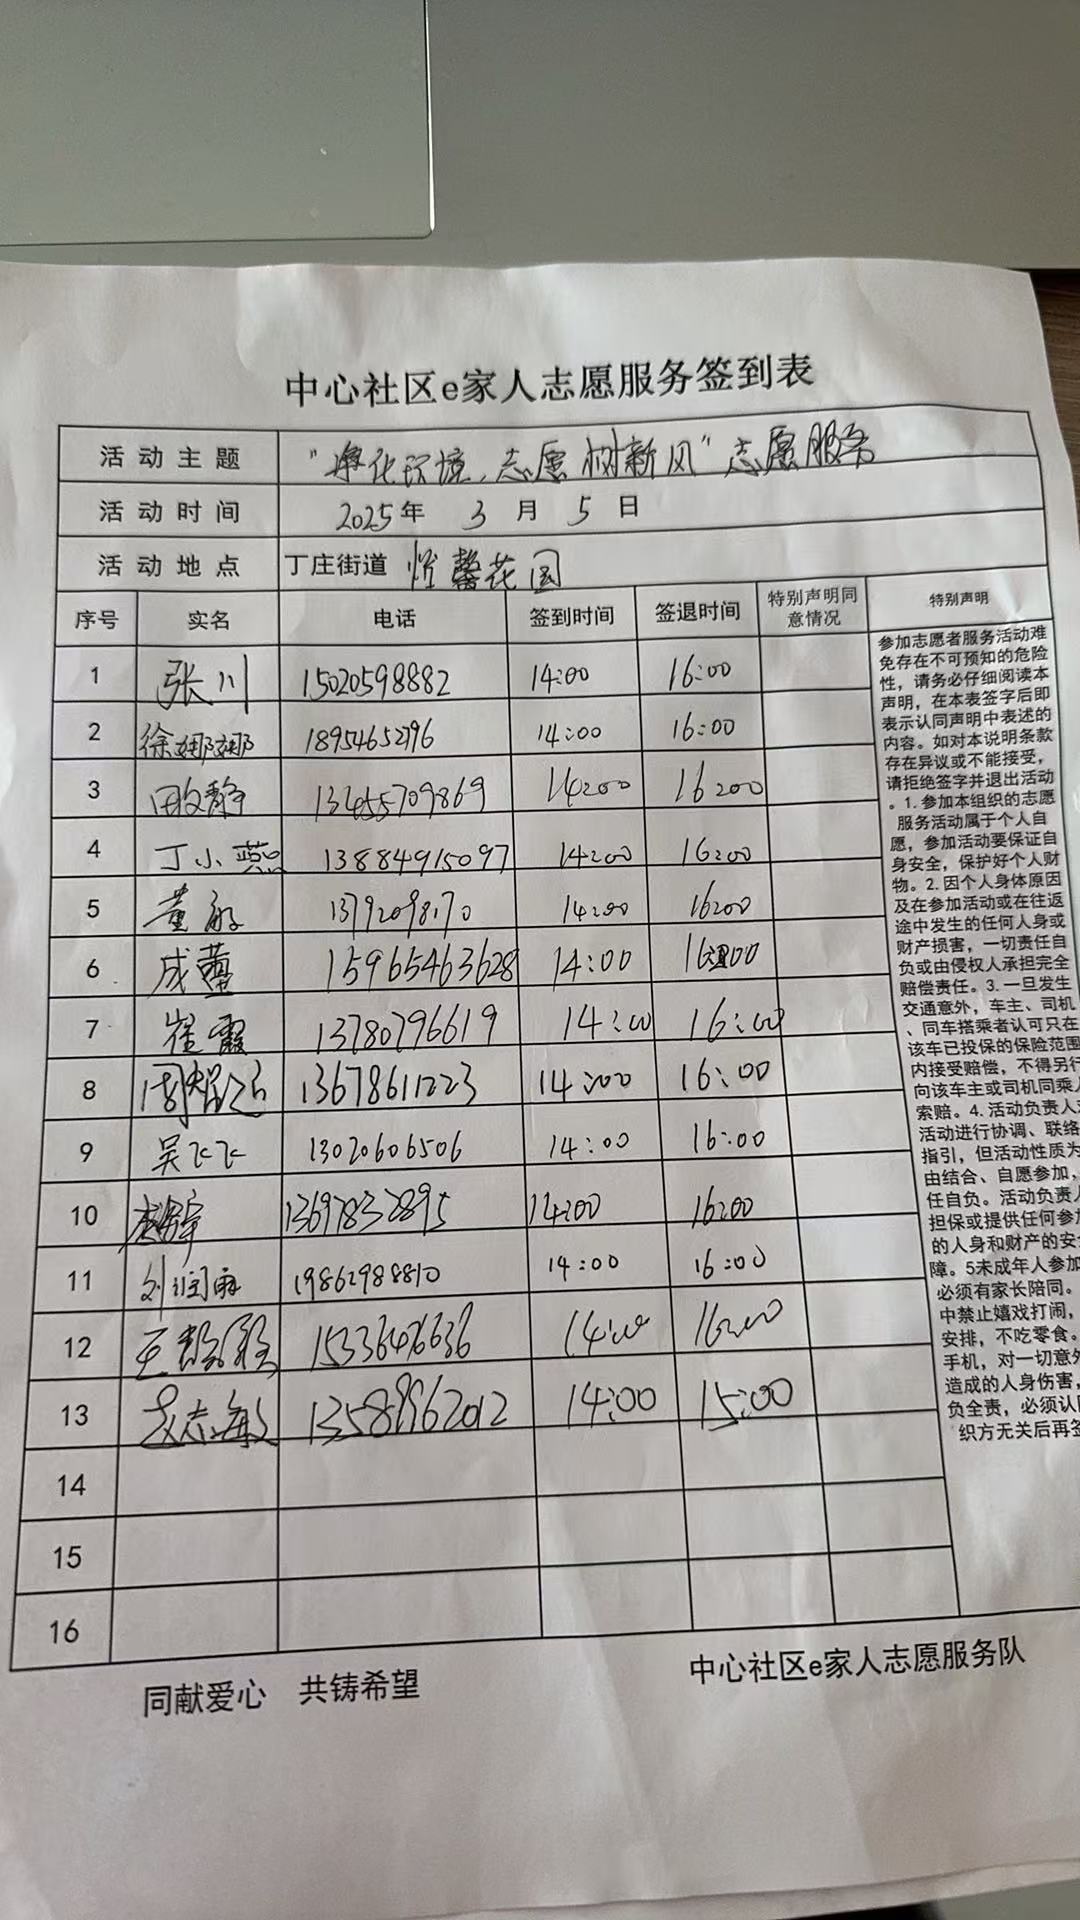 中心社区e家人志愿服务签到表
活动主题 "净化环境，志愿树新风"志愿服务
活动时间 2025年 3 月 5 日
活动地点 丁庄街道 悦馨花园
序号 实名 电话 签到时间 签退时间 特别声明同意情况 特别声明
1 张川 15020598882 14:00 16:00
2 徐娜娜 18954652796 14:00 16:00
3 田收静 13455709869 14:00 16:00
4 丁小燕 13884915097 14:00 16:00
5 董敏 13792098170 14:00 16:00
6 成蕾 15965463628 14:00 16:00
7 崔霞 13780796619 14:00 16:00
8 13678611223 14:00 16:00
9 吴飞飞 13020606506 14:00 16:00
10 13697832895 14:00 16:00
11 刘润雨 19862988810 14:00 16:00
12 王 15336476636 14:00 16:00
13 孟志敏 13589962012 14:00 15:00
14
15
16
参加志愿者服务活动难
免存在不可预知的危险
性，请务必仔细阅读本
声明，在本表签字后即
表示认同声明中表述的
内容。如对本说明条款
存在异议或不能接受，
请拒绝签字并退出活动
。1.参加本组织的志愿
服务活动属于个人自
愿，参加活动要保证自
身安全，保护好个人财
物。2.因个人身体原因
及在参加活动或在往返
途中发生的任何人身或
财产损害，一切责任自
负或由侵权人承担完全
赔偿责任。3.一旦发生
交通意外，车主、司机
、同车搭乘者认可只在
该车已投保的保险范围
内接受赔偿，不得另行
向该车主或司机同乘人
索赔。4.活动负责人对
活动进行协调、联络
指引，但活动性质为
由结合、自愿参加，
任自负。活动负责人
担保或提供任何参加
的人身和财产的安全
障。5未成年人参加
必须有家长陪同。
中禁止嬉戏打闹，
安排，不吃零食。
手机，对一切意外
造成的人身伤害，
负全责，必须认同
织方无关后再签
同献爱心 共铸希望
中心社区e家人志愿服务队